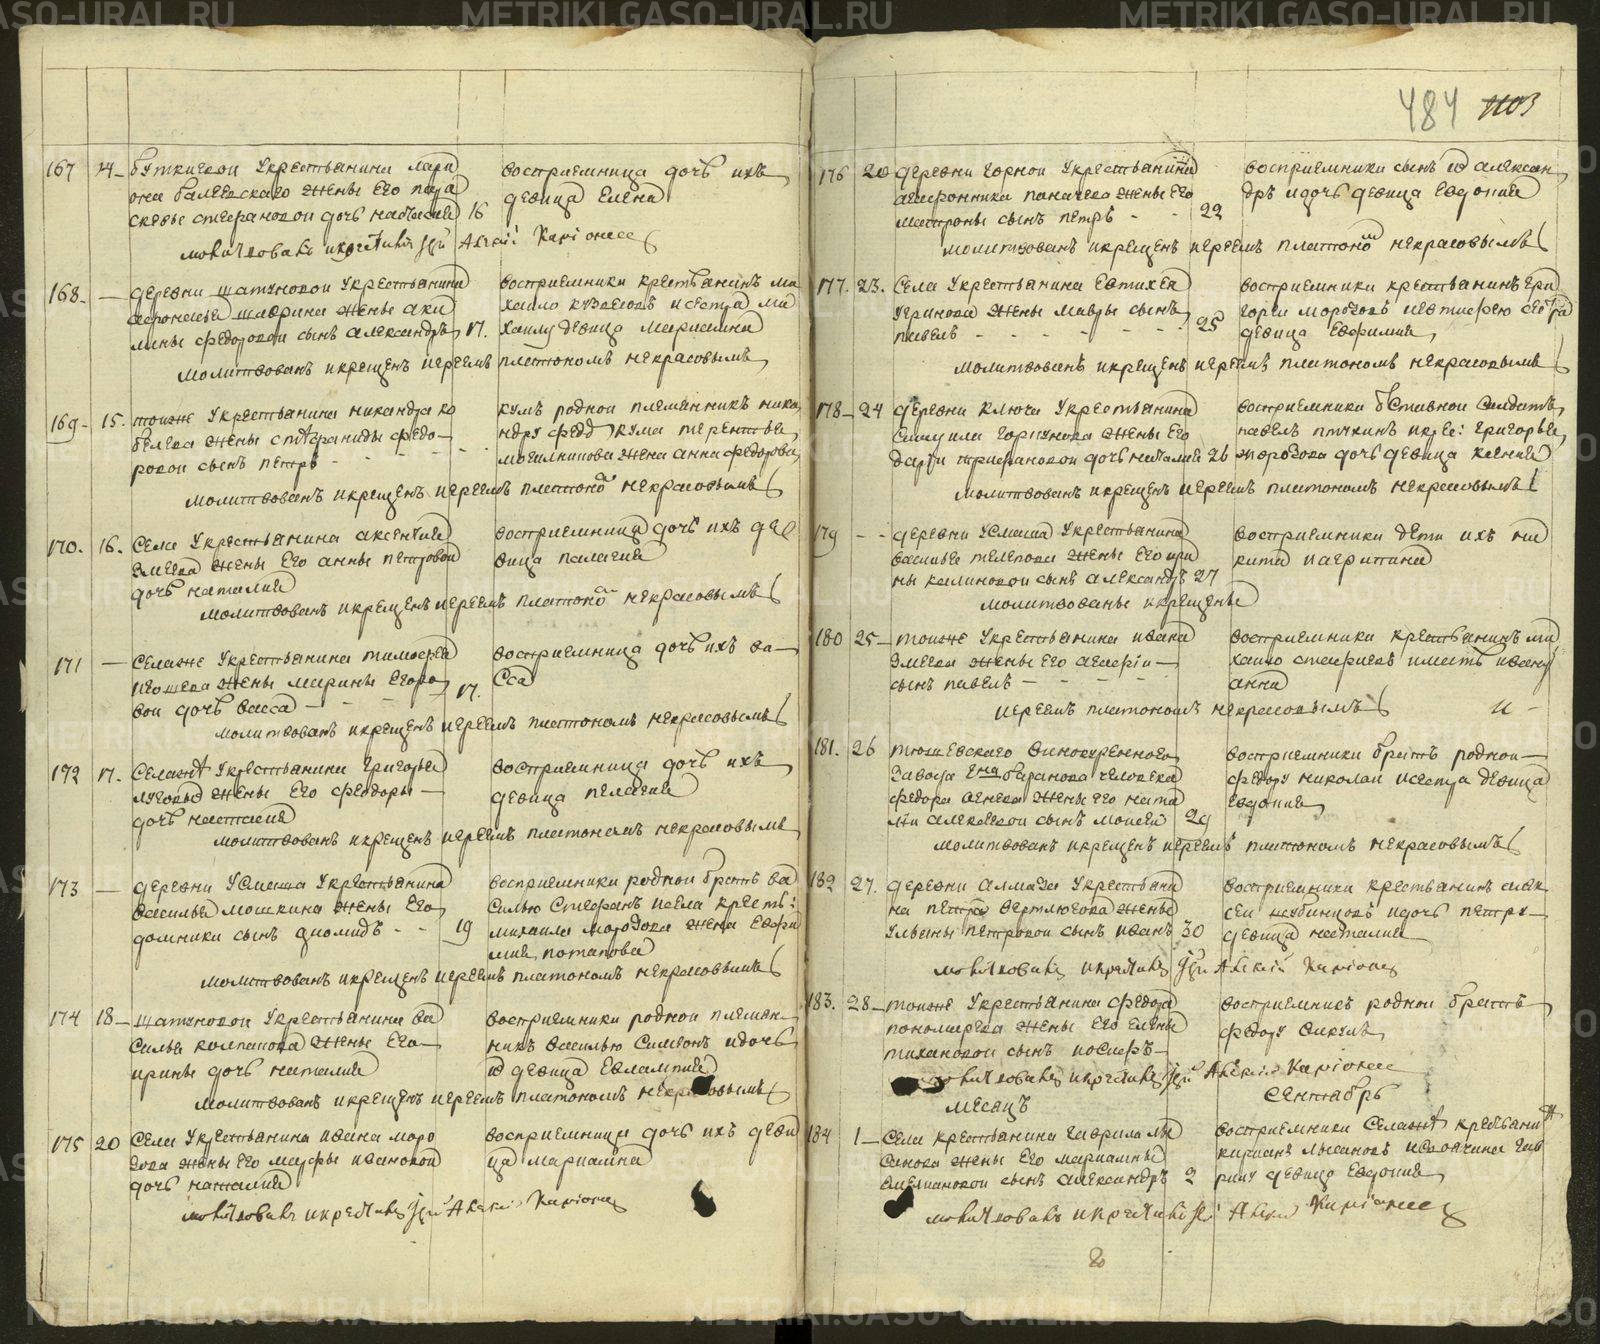 METRIKI.GASO-URAL.RU
484 1103
167 14 буткиской Укрестьянина лари
она балевскаго жены его пара
скевы стефановой дочь 16
восприемница дочь ихъ
девица Елена
молитвовалъ икрестилъ Iерей Алексiй
168 деревни шатуновой Укрестьянина
афонасья шаврина жены аки
лины федоровой сынъ александръ 17.
восприемники крестьянинъ ми
хаило и сестра ми
хаилу девица мариамна
молитвованъ икрещенъ иереемъ платономъ некрасовымъ
169 15. тоиже Укрестьянина никандра ко
белева жены стефаниды федо
ровой сынъ петръ
кумъ родной племянникъ ника
ндру кума терентья
могилникова жена анна федорова
молитвованъ икрещенъ иереемъ платоном некрасовымъ
170. 16. Села Укрестьянина аксентия
змеева жены Его анны петровой
дочь наталия
восприемница дочь ихъ де
вица палагия
молитвованъ икрещенъ иереемъ платоном некрасовымъ
171 Селаже Укрестьянина тимофея
жены марины Егоро
вой дочь васса 17.
восприемница дочь ихъ ва
сса
молитвованъ икрещенъ иереемъ платономъ некрасовымъ
172 17. Селаже Укрестьянина григорья
жены Его федоры
дочь настасия
восприемница дочь ихъ
девица пелагия
молитвованъ икрещенъ иереемъ платономъ некрасовымъ
173 деревни Усмана Укрестьянина
василья мошкина жены Его
домники сынъ диомидъ 19
восприемники родной братъ ва
силью Стефанъ исела крестъ:
михаила морозова жена Евфи
мия потапова
молитвованъ икрещенъ иереемъ платономъ некрасовымъ
174 18 шатуновой Укрестьянина ва
силья колпакова жены Его
ирины дочь наталия
восприемники родной племян
никъ василью Симеонъ идочь
девица Евлампия
молитвованъ икрещенъ иереемъ платономъ некрасовымъ
175 20 Села Укрестьянина ивана моро
зова жены Его марфы ивановой
дочь наталия
восприемница дочь ихъ деви
ца мариамна
молитвовалъ икрестилъ Iерей Алексiй
176 20 деревни горной Укрестьянина
аньфоника паначева жены Его
матроны сынъ петръ 22
восприемники сынъ александръ
идочь девица Евдокия
молитвованъ икрещенъ иереемъ платоном некрасовымъ
177. 23. Села Укрестьянина Евтихея
Угринова жены мавры сынъ
павелъ 25
восприемники крестьянинъ гри
горей морозовъ сестра
девица Евфимия
молитвованъ икрещенъ иереемъ платономъ некрасовымъ
178 24 деревни ключа Укрестьянина
самуила горчунова жены Его
дарьи трифановой дочь наталия 26
восприемники отставной Салдатъ
павелъ пичкинъ икре: григорья
морозова дочь девица ксения
молитвованъ икрещенъ иереемъ платономъ некрасовымъ
179 деревни Усмана Укрестьянина
василья телепова жены Его ири
ны калиновой сынъ александръ 27
восприемники дети ихъ ни
кита иагрипина
молитвованы икрещены
180 25 тоиже Укрестьянина ивана
змеева жены Его агафiи
сынъ павелъ
восприемники крестьянинъ ми
хаило имать ивану
анна
иереемъ платономъ некрасовымъ
181. 26 талицкаго винокуреннаго
завода баранова человека
федора агеева жены Его ната
лiи алексеевой сынъ моисей 29
восприемники братъ родной
федору николай исестра девица
Евдокия
молитвованъ икрещенъ иереемъ платономъ некрасовымъ
182 27. деревни алмаза Укрестьяни
на петра вертлюгова жены
Ульяны петровой сынъ иванъ 30
восприемники крестьянинъ алек
сей шубинцовъ идочь петру
девица наталия
молитвовалъ икрестилъ Iерей Алексiй
183. 28 тоиже Укрестьянина федора
пономарева жены Его Елены
тихановой сынъ иосифъ
восприемникъ родной братъ
федору викулъ
молитвовалъ икрестилъ Iерей Алексiй
месяцъ сентябрь
184 1 Села крестьянина гаврила лы
санова жены Его мариамны
амелиановой сынъ александръ 2
восприемники Селаже крестьянин
кирианъ лысановъ гав
рилу девица Евдокия
молитвовалъ икрестилъ Iерей Алексiй